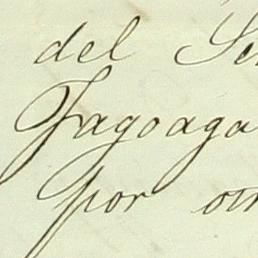 del
Fagoaga
por